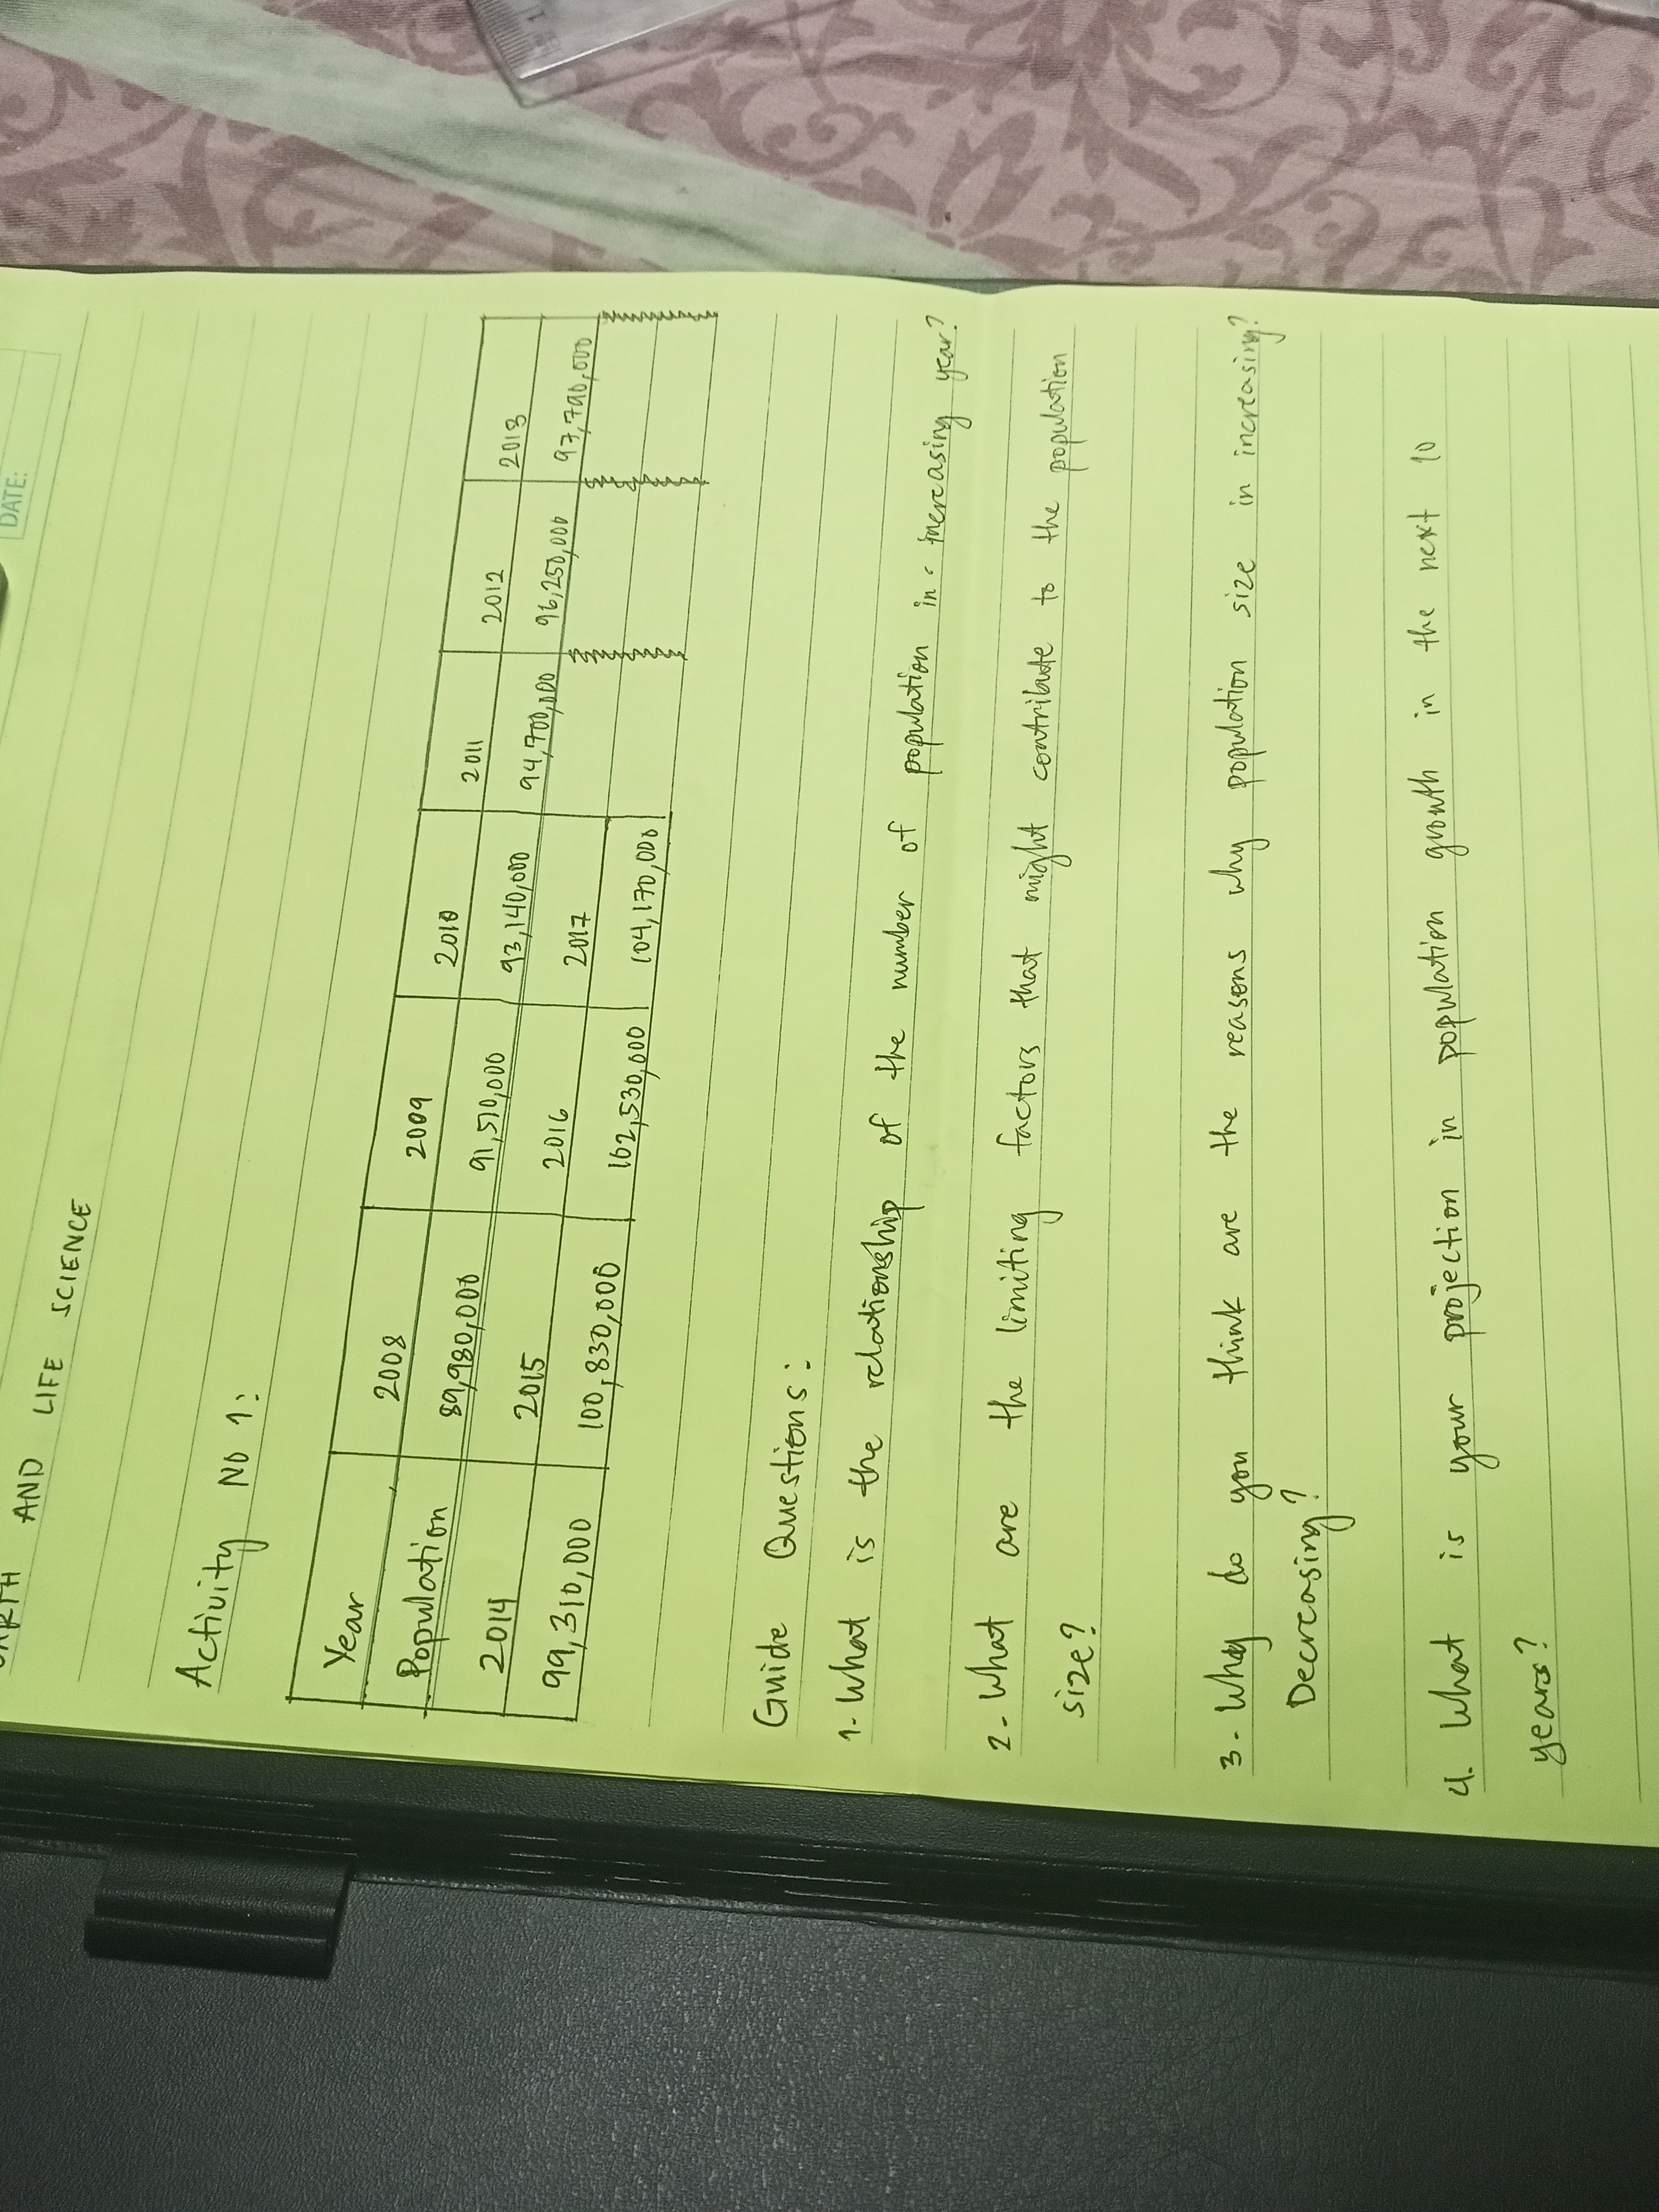 DATE:
AND LIFE SCIENCE
Activity NO 1:
Year 2008 2009 2010 2011 2012 2013
Population 89,980,000 91,570,000 93,140,000 94,700,000 96,250,000 97,790,000
2014 2015 2016 2017
99,310,000 100,830,000 102,530,000 104,170,000
Guide Questions:
1. What is the relationship of the number of population in increasing year?
2. What are the limiting factors that might contribute to the population
size?
3. Whay do you think are the reasons why population size in increasing?
Decreasing?
4. What is your projection in population growth in the next 10
years?